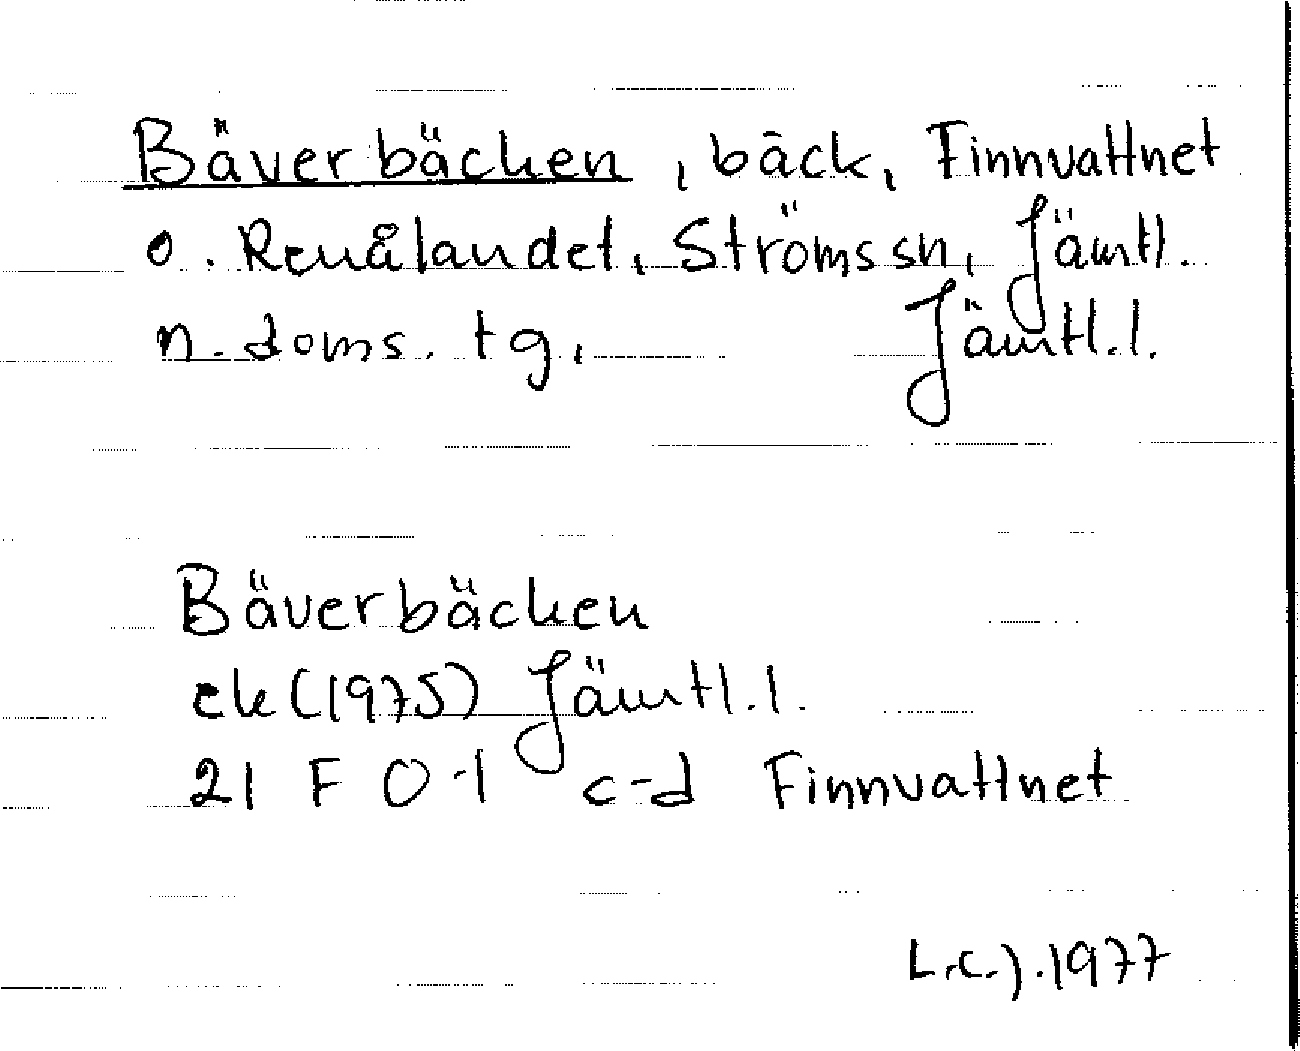 Bäverbäcken, bäck, Finnvattnet
o. Renålandet, Strömssn, Jämtl.
n. doms. tg, Jämtl.l.
Bäverbäcken
ek (1975) Jämtl.l.
21 F 0-1 c-d Finnvattnet
L.C.J. 1977